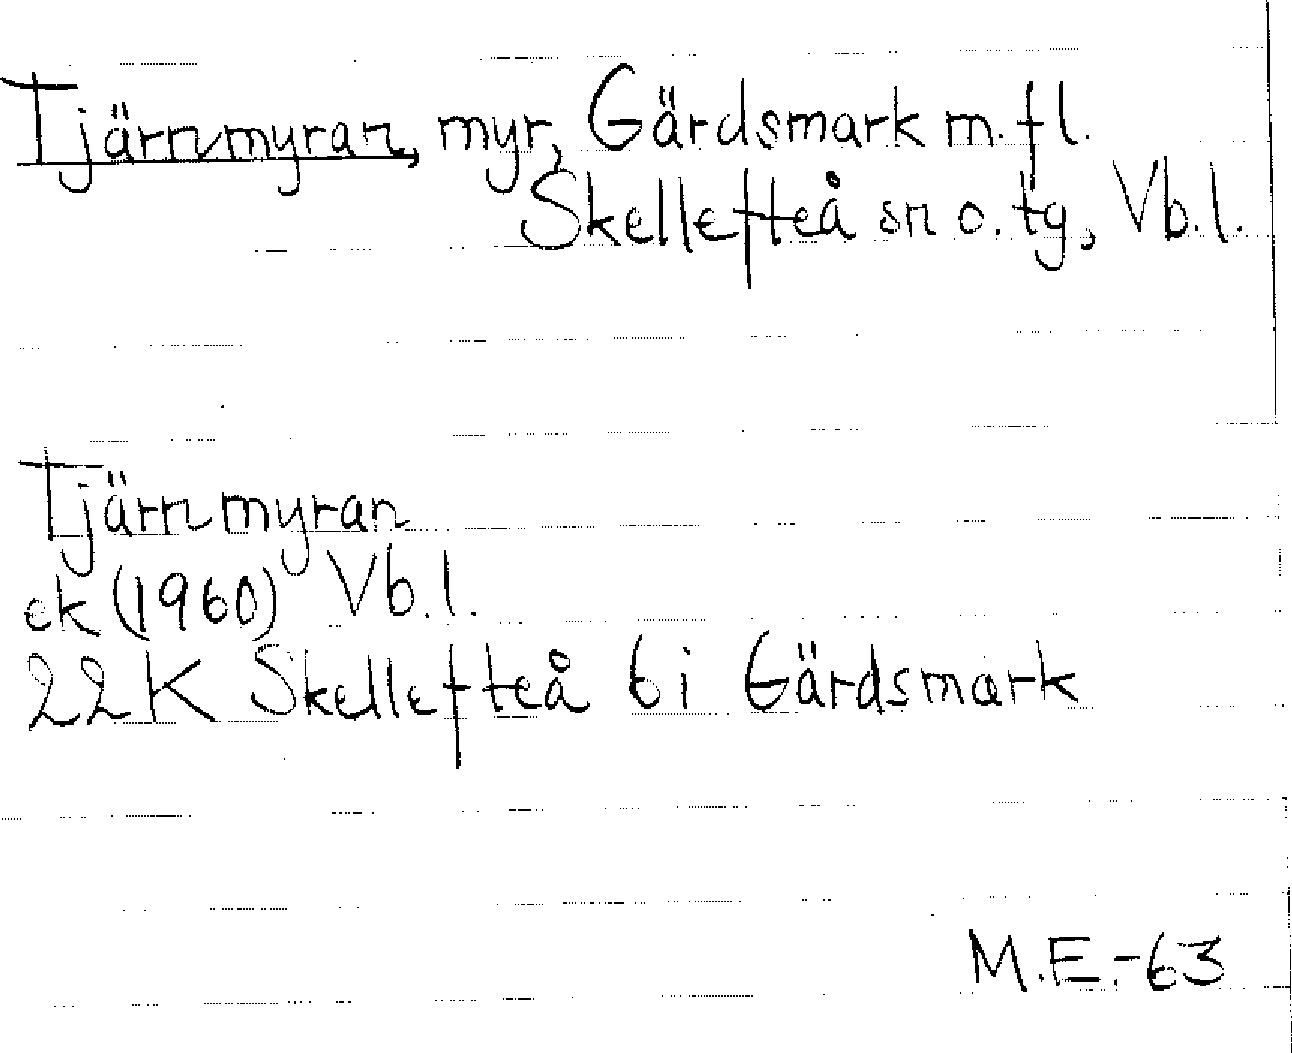 Tjärnmyran, myr, Gärdsmark m.fl.
Skellefteå sn o. tg, Vb.l.
Tjärnmyran
ek (1960) Vb.l.
22K Skellefteå 6i Gärdsmark
M.E.-63